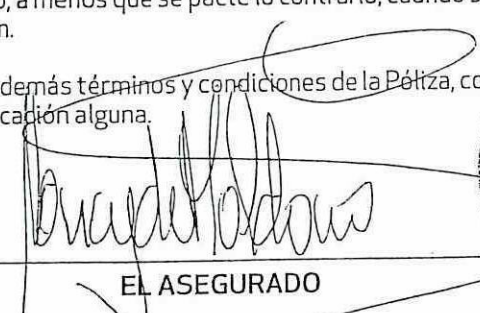 o, a menos que se pacte lo contrario, cuando s
n.
demás términos y condiciones de la Póliza, co
cación alguna.
EL ASEGURADO